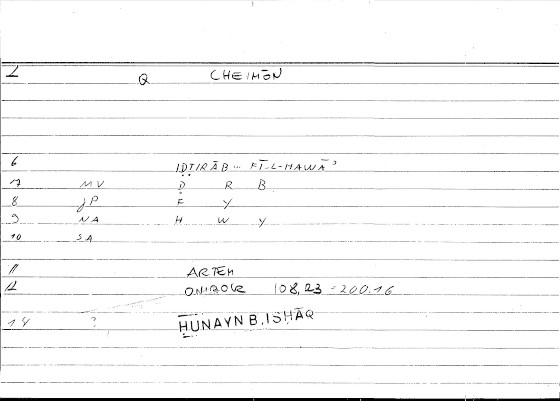 1 Q CHEIMŌN
6 IḌṬIRĀB... FĪ-L-HAWĀʾ
7 MV Ḍ R B
8 JP F Y
9 NA H W Y
10 SA
11 ARTEM
12 ONIROCR 108,23 - 200.16
14 ? ḤUNAYN B. ISḤĀQ